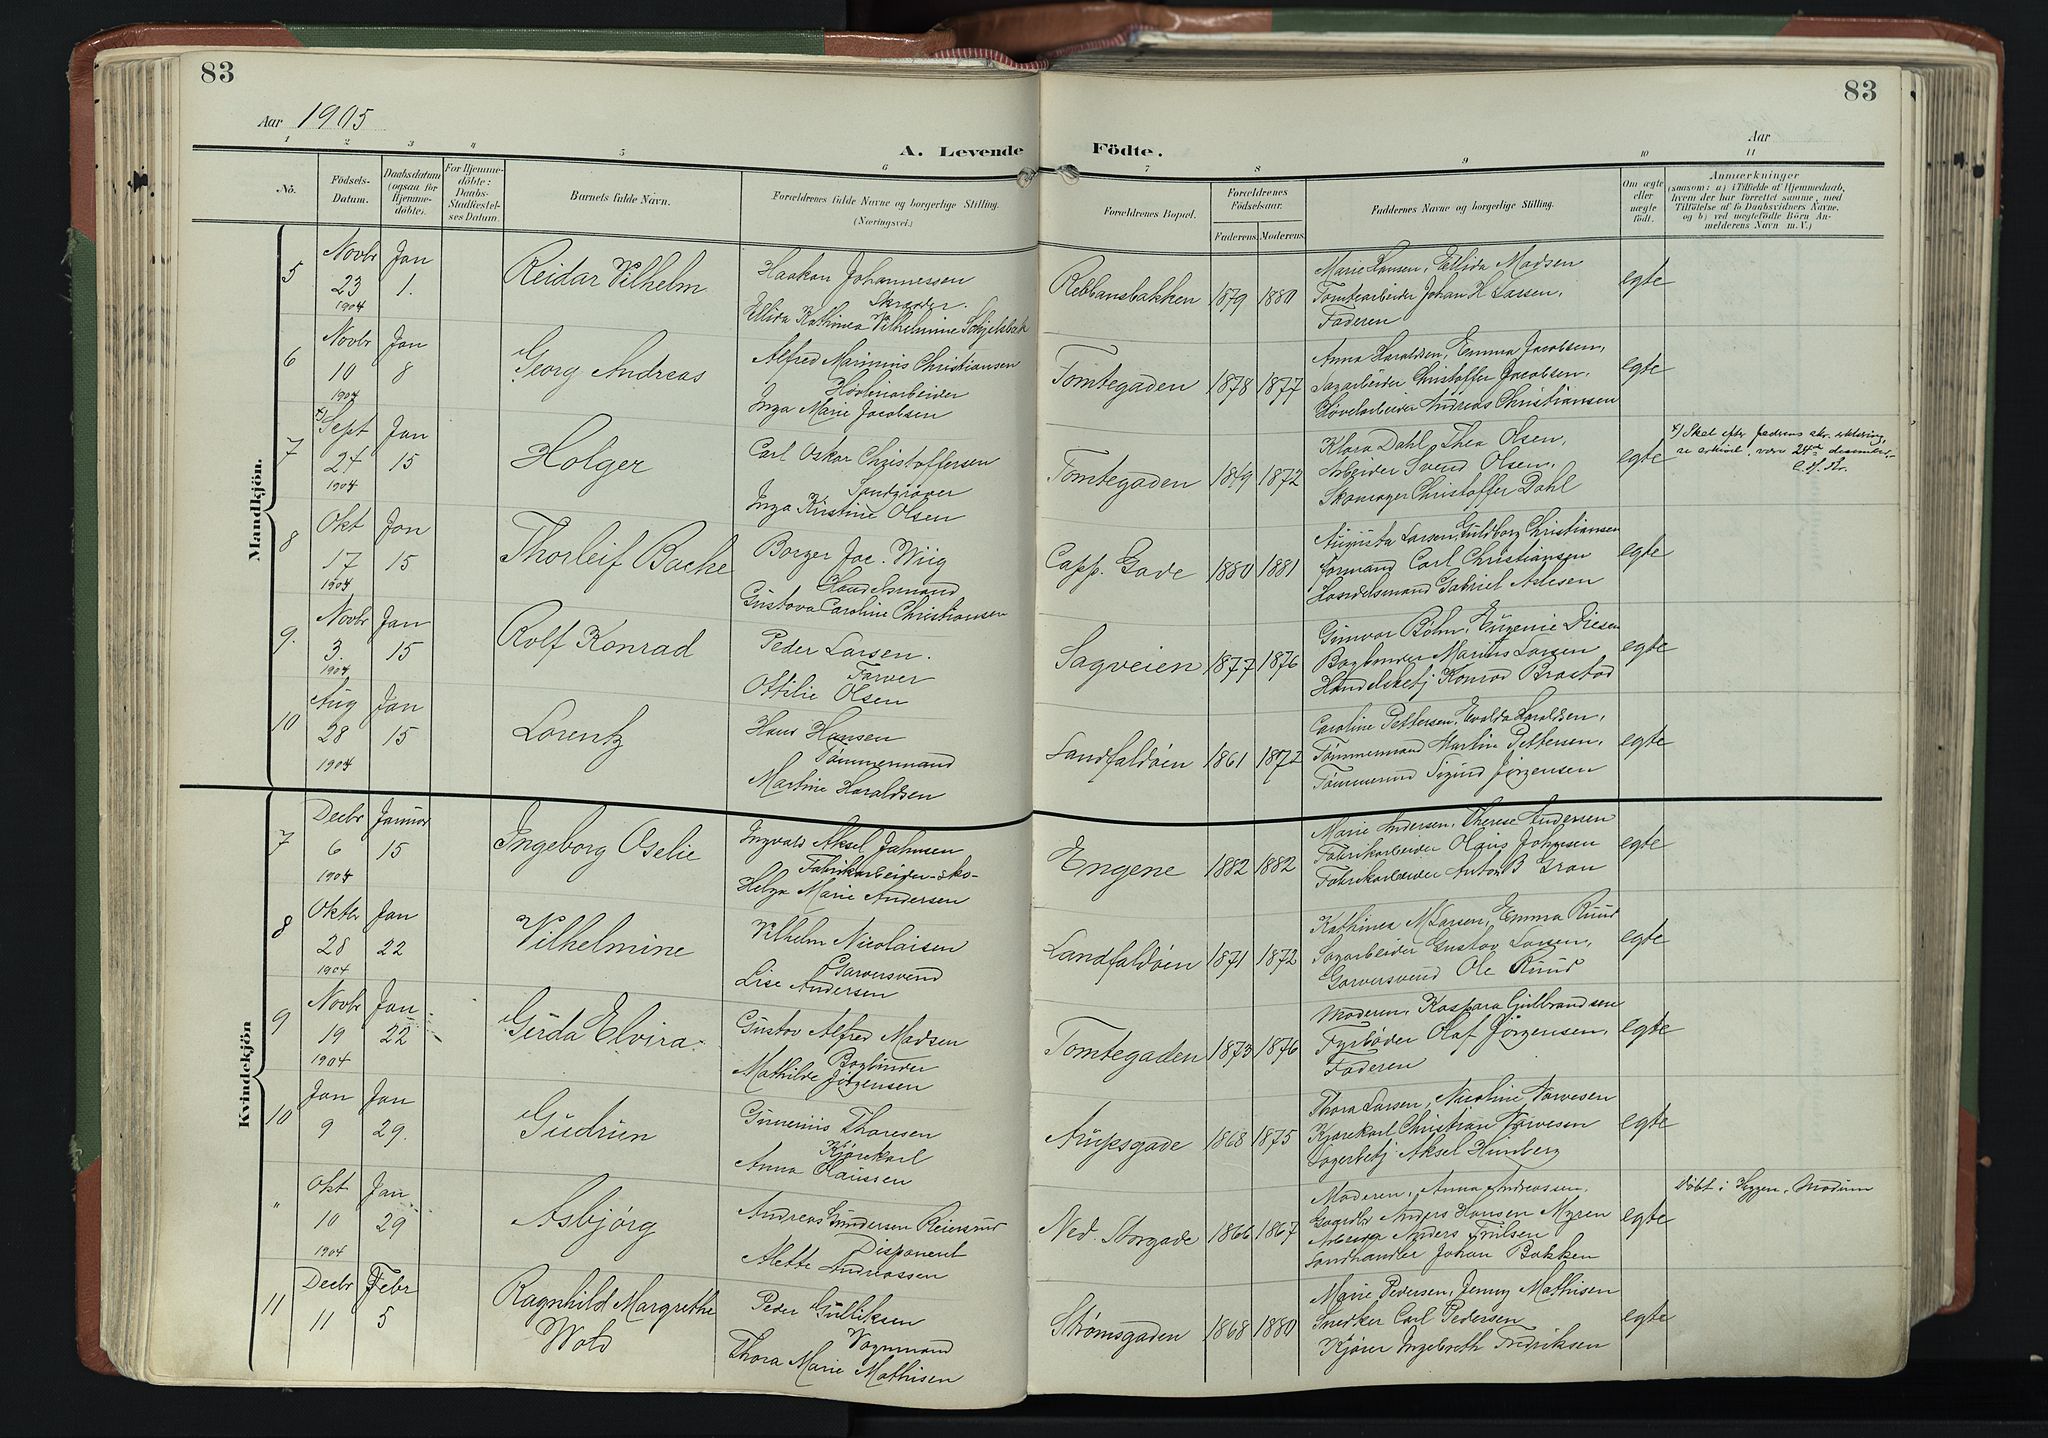 83
83
Aar 1905
Aar
A. Levende Födte.
1 2 3 4 5 6 7 8 9 10 11
No.
Födsels-Datum.
Daabsdatum (ogsaa for Hjemmedöbte).
For Hjemmedöbte: Daabs-Stadfæstelses Datum.
Barnets fulde Navn.
Forældrenes fulde Navne og borgerlige Stilling.
(Næringsvei.)
Forældrenes Bopæl.
Forældrenes Födselsaar.
Faderens. Moderens.
Faddernes Navne og borgerlige Stilling.
Om ægte eller uægte födt.
Anmærkninger
(saasom: a) i Tilfælde af Hjemmedaab,
hvem der har forrettet samme, med
Tilföielse af to Daabsvidners Navne,
og b) ved uægtefödte Börn An-
melderens Navn m. V.)
Mandkjön.
5
Novbr 23 1904
Jan 1.
Reidar Vilhelm
Haakon Johannessen
Skræder.
Ellida Kathinea Vilhelmine Schjelsbæk
Rebbansbakken
1879 1880
Marie Hansen, Ellida Madsen
Tomtearbeider Johan H Larsen,
Faderen
egte
6
Novbr 10 1904
Jan 8
Georg Andreas
Alfred Marinius Christiansen
Høvlinarbeider
Inga Marie Jacobsen
Tomtegaden
1878 1877
Anna Haraldsen, Emma Jacobsen,
Sagarbeider Christoffer Jacobsen,
Høvelarbeider Andreas Christiansen
egte
7
x) Sept 24 1904
Jan 15
Holger
Carl Oskar Christoffersen
Sandgraver
Inga Kristine Olsen
Tomtegaden
1879 1872
Klara Dahl, Thea Olsen,
Arbeider Svend Olsen,
Skomager Christoffer Dahl
egte
x) Skal efter faderens skr. erklæring,
se arkivet, være 24de desember.
8
Okt 17 1904
Jan 15
Thorleif Bache
Borger Jac. Wiig
Handelsmand
Gustava Caroline Christiansen
Capp. Gade
1880 1881
Augusta Larsen, Guldborg Christiansen
formand Carl Christiansen
Handelsmand Gabriel Aslesen
egte
9.
Novbr 3. 1904
Jan 15
Rolf Konrad
Peder Larsen.
Farver
Ottilie Olsen
Sagveien
1877 1876
Gunvor Bøhm, Eugenie Diesen
Bogbinder Marius Larsen
Handelsbetj Konrad Brastad
egte
10
Aug 28 1904
Jan 15
Lorentz
Hans Hansen
Tømmermand
Martine Haraldsen
Landfaldøen
1861 1872
Caroline Pettersen, Evalda Haraldsen,
Tømmermand Martin Pettersen,
Tømmermd Sigurd Jørgensen
egte
Kvindekjön
7
Decbr 6 1904
Januar 15
Ingeborg Oselie
Ingvald Aksel Johnsen
Fabrikarbeider-sko-
Helga Marie Andersen
Engene
1882 1882
Marie Andersen, Therese Andersen
Fabrikarbeider Hans Johnsen
Fabrikarbeider Anton B Gran
egte
8
Oktbr 28 1904
Jan 22
Vilhelmine
Vilhelm Nicolaisen
Garversvend
Lise Andersen
Landfaldøen
1871 1872
Kathinea M Larsen, Emma Ruud
Sagarbeider Gustav Larsen,
Garversvend Ole Ruud
egte
9
Novbr 19 1904
Jan 22
Gerda Elvira
Gustav Alfred Madsen
Bogbinder
Mathilde Jörgensen
Tomtegaden
1873 1876
Moderen, Kaspara Gulbrandsen
Fyrbøder Olaf Jørgensen,
Faderen
egte
10
Jan 9
Jan 29.
Gudrun
Gunerius Thoresen
Kjørekarl
Anna Olaussen
Amtmandsgade
1868 1875
Thora Larsen, Nicoline Narvesen
Kjørekarl Christian Narvesen
Lagerbetj Aksel Himberg
egte
"
Okt 10 1904
Jan 29
Asbjørg
Andreas Gundersen Reiersrud
Disponent
Alette Andreassen
Ned. Storgade
1866 1867
Moderen, Anna Andreassen,
Gaardbr Anders Hansen Myren
Anders Trulsen
Landhandler Johan Bakken
egte
Døbt i Heggen, Modum
11
Decbr 11
Febr 5
Ragnhild Margrethe Wold
Peder Gulliksen
Vognmand
Thora Marie Mathisen
Strømsgaden
1868 1880
Marie Pedersen, Jenny Mathisen
Snedker Carl Pedersen
Kjører Ingebreth Fredriksen
egte